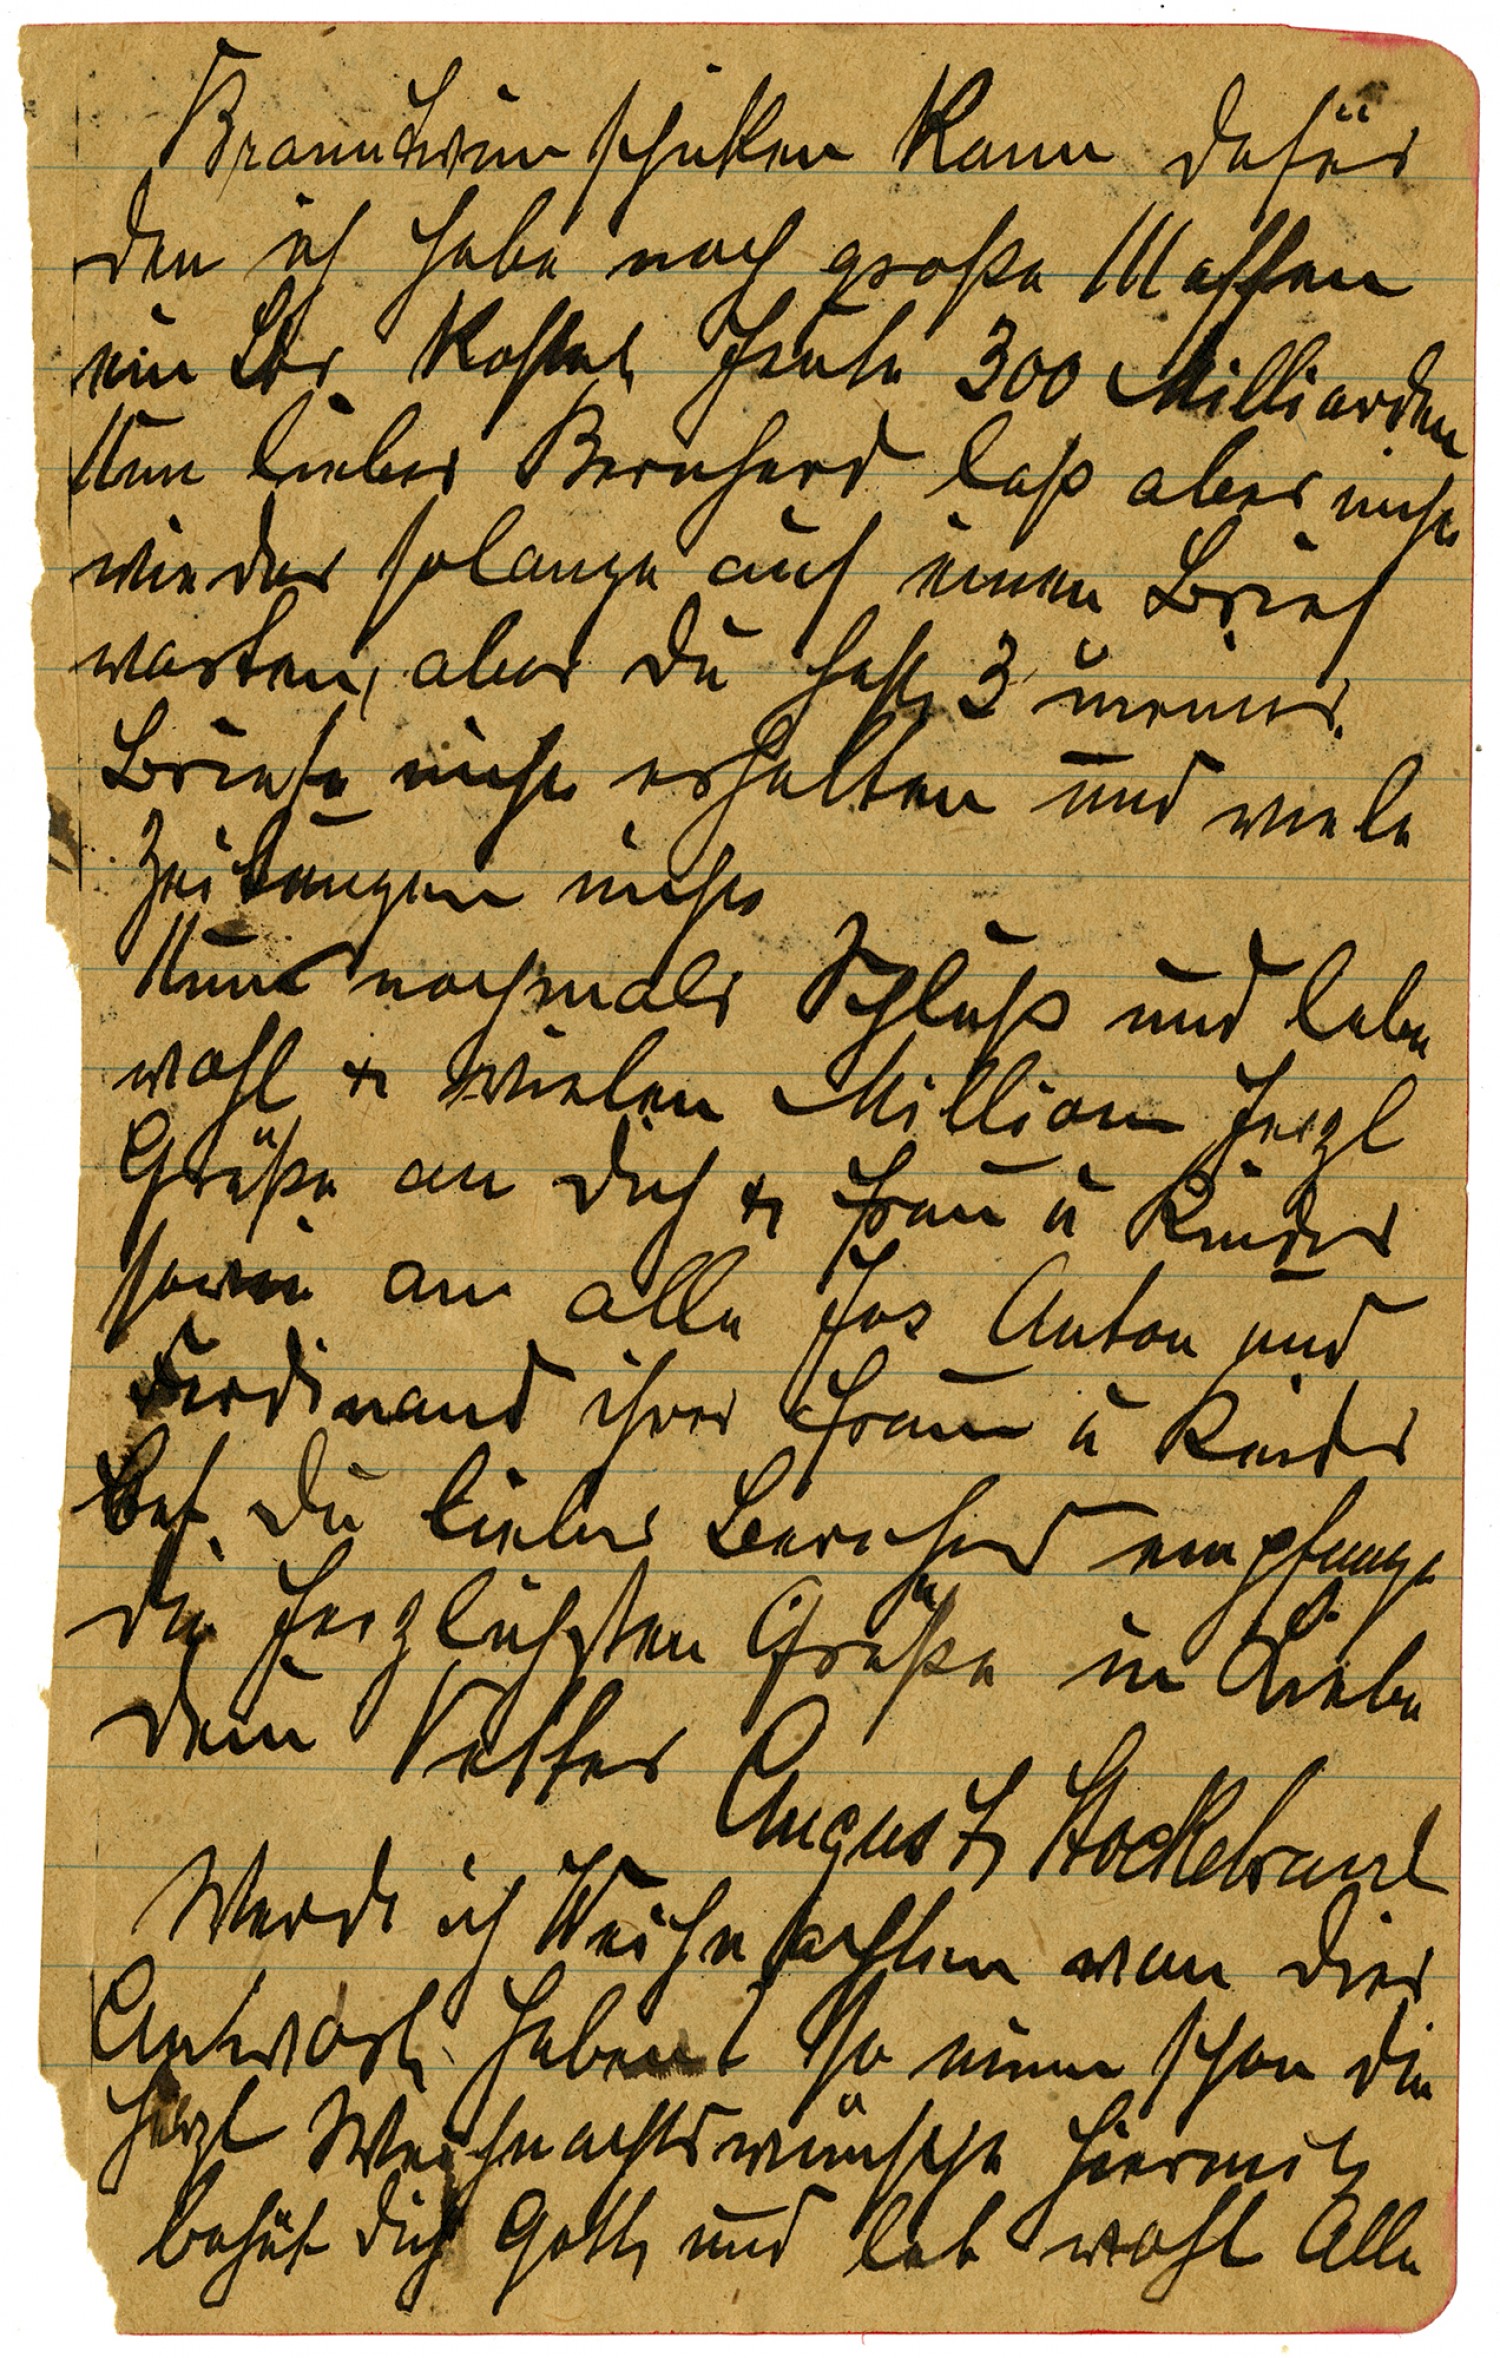 Branntwein schicken kann dafür
den ich habe noch große Massen
ein Ltr. Kostet heute 300 Milliarden
Nun lieber Bernhard laß aber nicht
wieder solange auf einen Brief
warten, aber Du hast 3 meiner
Briefe nicht erhalten und viele
Zeitungen nicht
Nun nochmals Schluß und lebe
wohl & vielen Million herzl
Grüße an Dich & Frau u Kinder
sowie an alle Jos Anton und
Ferdinand ihrer Frau u Kinder
Du lieber Bernhard empfange
die herzlichsten Grüße in Liebe
dein Vetter
August Stockebrand
Werde ich Weihnachten von Dier
Antwort haben? So nimm schon die
herzl Weihnachtswünsche hiermit
behüt dich Gott, und leb wohl Alle